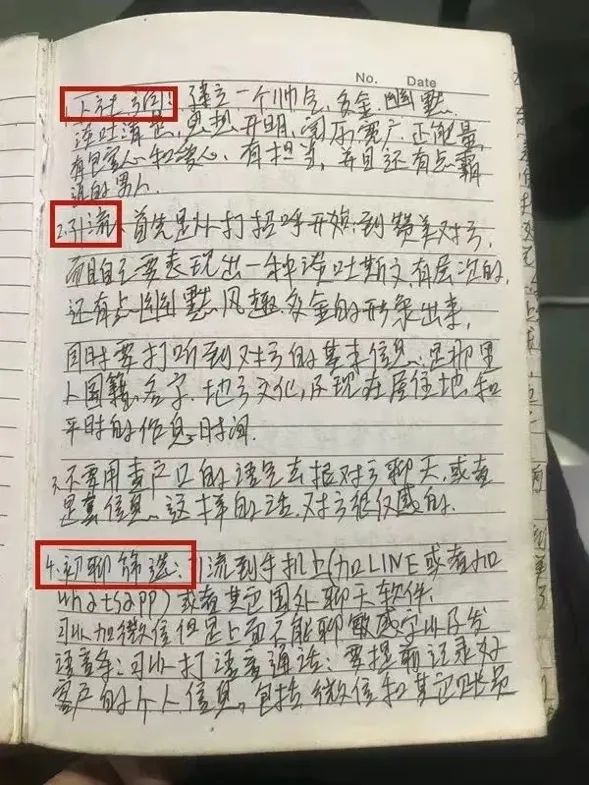 No. Date
1.人社引图：建立一个帅气,多金.幽默.
谈吐清楚,思想开明,阅历宽广.正能量,
有包容心和爱心、有担当,并且还有点霸
道的男人.
2.引流、首先是从打招呼开始：到赞美对方,
而自己要表现出一种谈吐斯文有层次的,
还有点幽默.风趣.多金的形象出来,
同时要打听到对方的基本信息:是那里
人国籍、名字.地方文化,及现在居住地.和
平时的作息时间.
3.不要用查户口的语气去跟对方聊天,或者
信息,这样的话.对方很敏感的.
4.初聊筛选：引流到手机上(加LINE或者加
whatsapp)或者其它国外聊天软件.
可以加微信但是上面不能聊敏感字以及发
语音条:可以打语音通话:要提前记录好
客户的个人信息,包括微信和其它账号